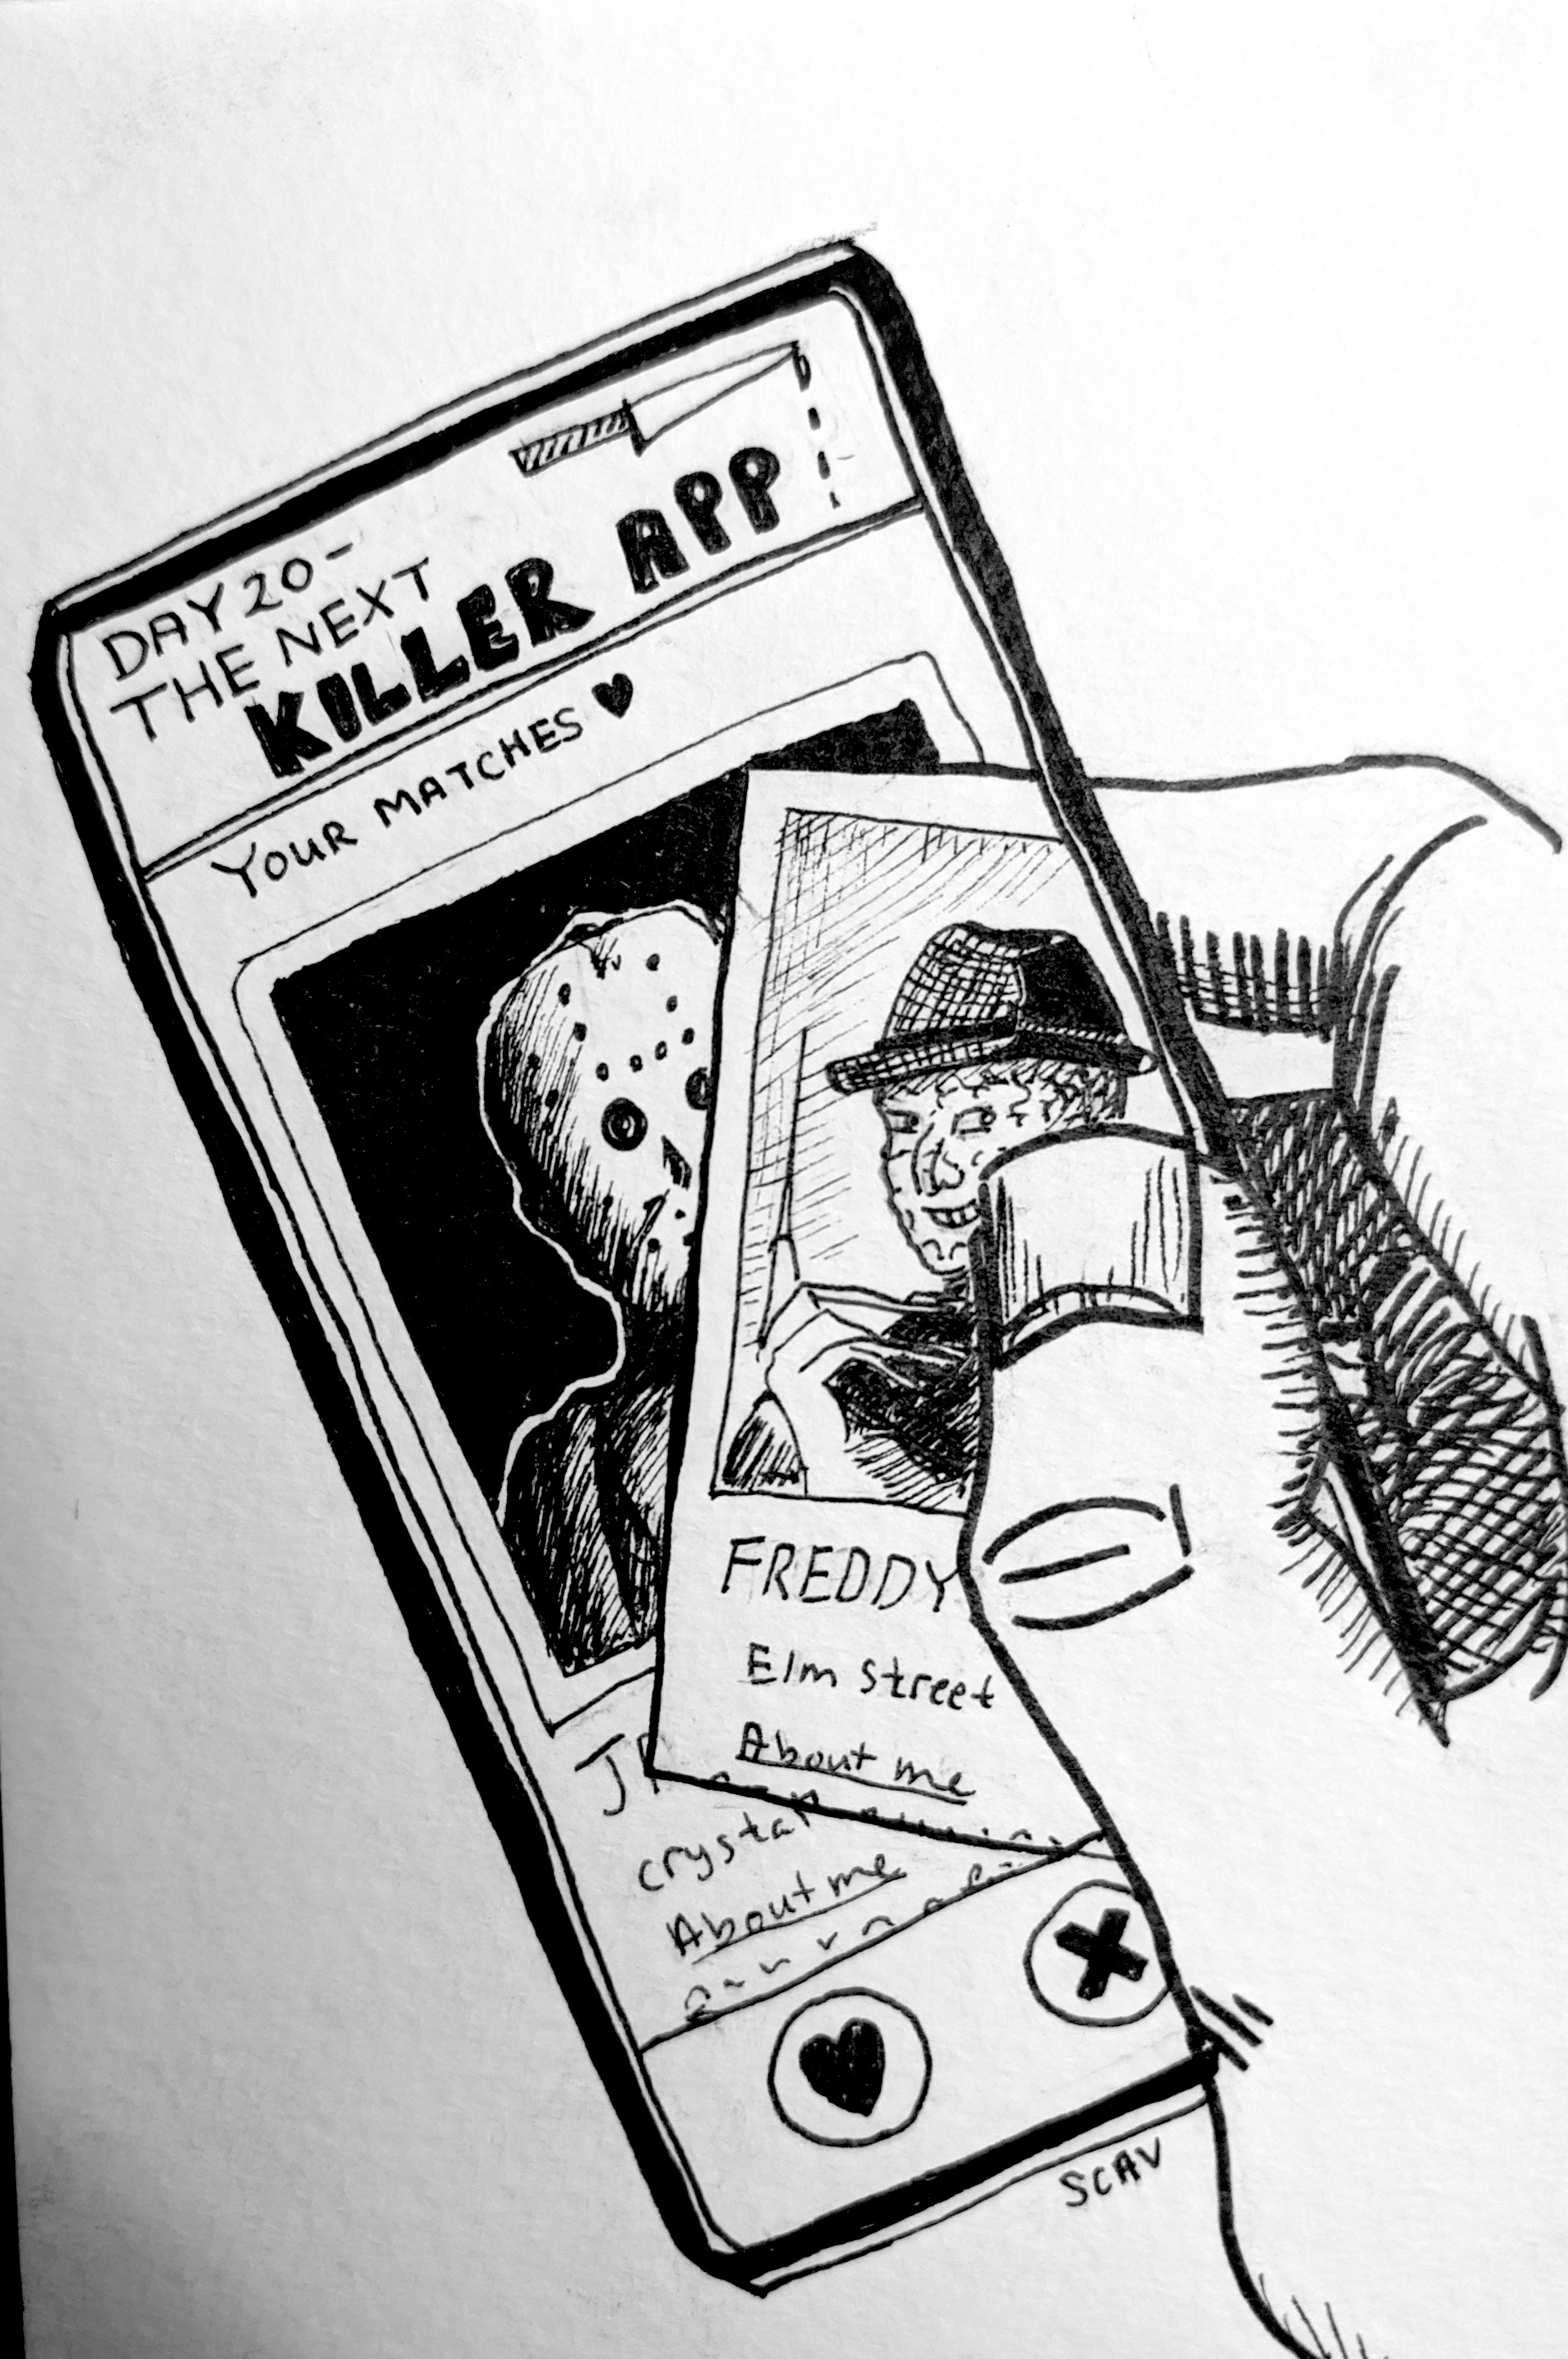 DAY 20-
THE NEXT
KILLER APP
YOUR MATCHES ♥
FREDDY
Elm Street
About me
JA
crystal
About me
SCAV